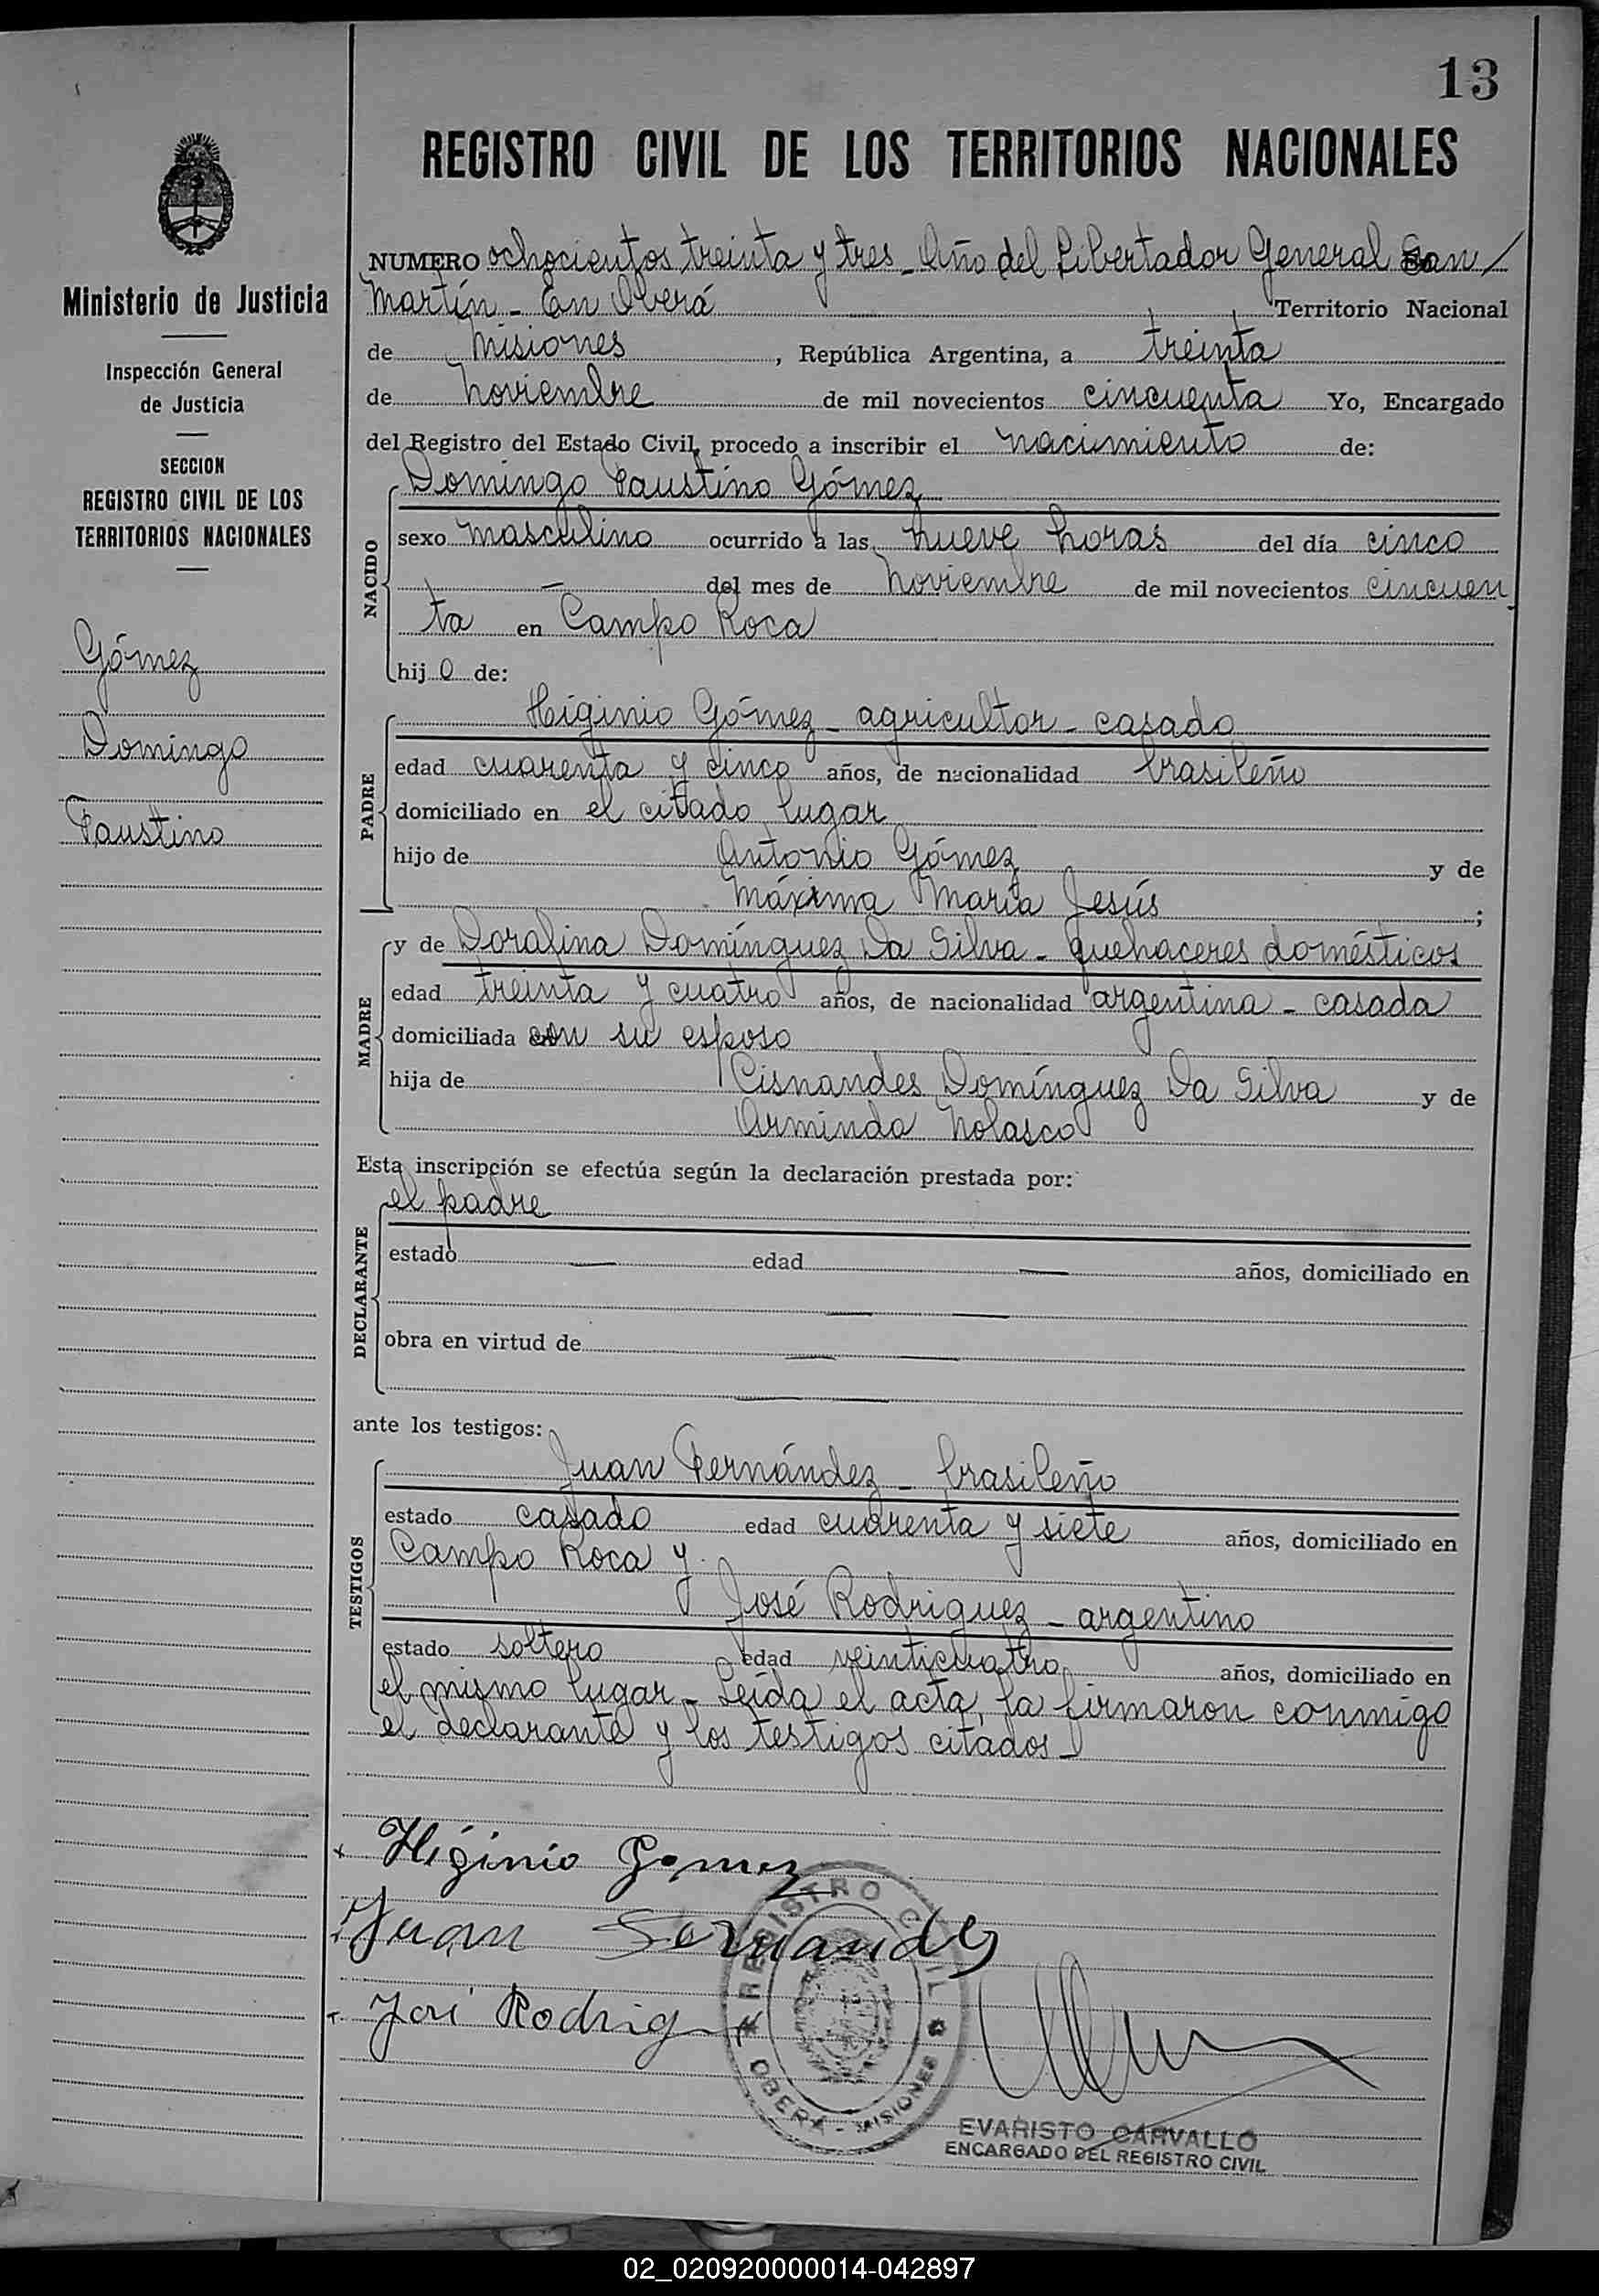 13
REGISTRO CIVIL DE LOS TERRITORIOS NACIONALES
Ministerio de Justicia
Inspección General
de Justicia
SECCION
REGISTRO CIVIL DE LOS
TERRITORIOS NACIONALES
Gómez
Domingo
Faustino
NUMERO ochocientos treinta y tres - Año del Libertador General San
Martín - En Oberá Territorio Nacional
de Misiones, República Argentina, a treinta
de noviembre de mil novecientos cincuenta Yo, Encargado
del Registro del Estado Civil, procedo a inscribir el nacimiento de:
NACIDO
Domingo Faustino Gómez
sexo masculino ocurrido a las nueve horas del día cinco
— del mes de noviembre de mil novecientos cincuen
ta en Campo Roca
hijo de:
PADRE
Higinio Gómez - agricultor - casado
edad cuarenta y cinco años, de nacionalidad brasileño
domiciliado en el citado lugar
hijo de Antonio Gómez y de
Máxima María Jesús;
MADRE
y de Doralina Domínguez Da Silva - quehaceres domésticos
edad treinta y cuatro años, de nacionalidad argentina - casada
domiciliada con su esposo
hija de Cisnandes Domínguez Da Silva y de
Arminda Nolasco
Esta inscripción se efectúa según la declaración prestada por:
DECLARANTE
el padre
estado — edad — años, domiciliado en
— —
obra en virtud de — —
—
ante los testigos:
TESTIGOS
Juan Fernández - brasileño
estado casado edad cuarenta y siete años, domiciliado en
Campo Roca y
José Rodriguez - argentino
estado soltero edad veinticuatro años, domiciliado en
el mismo lugar - Leída el acta, la firmaron conmigo
el declarante y los testigos citados -
Higinio Gomez
Juan Fernandez
José Rodrig
REGISTRO CIVIL
OBERA - MISIONES
EVARISTO CARVALLO
ENCARGADO DEL REGISTRO CIVIL
02_020920000014-042897